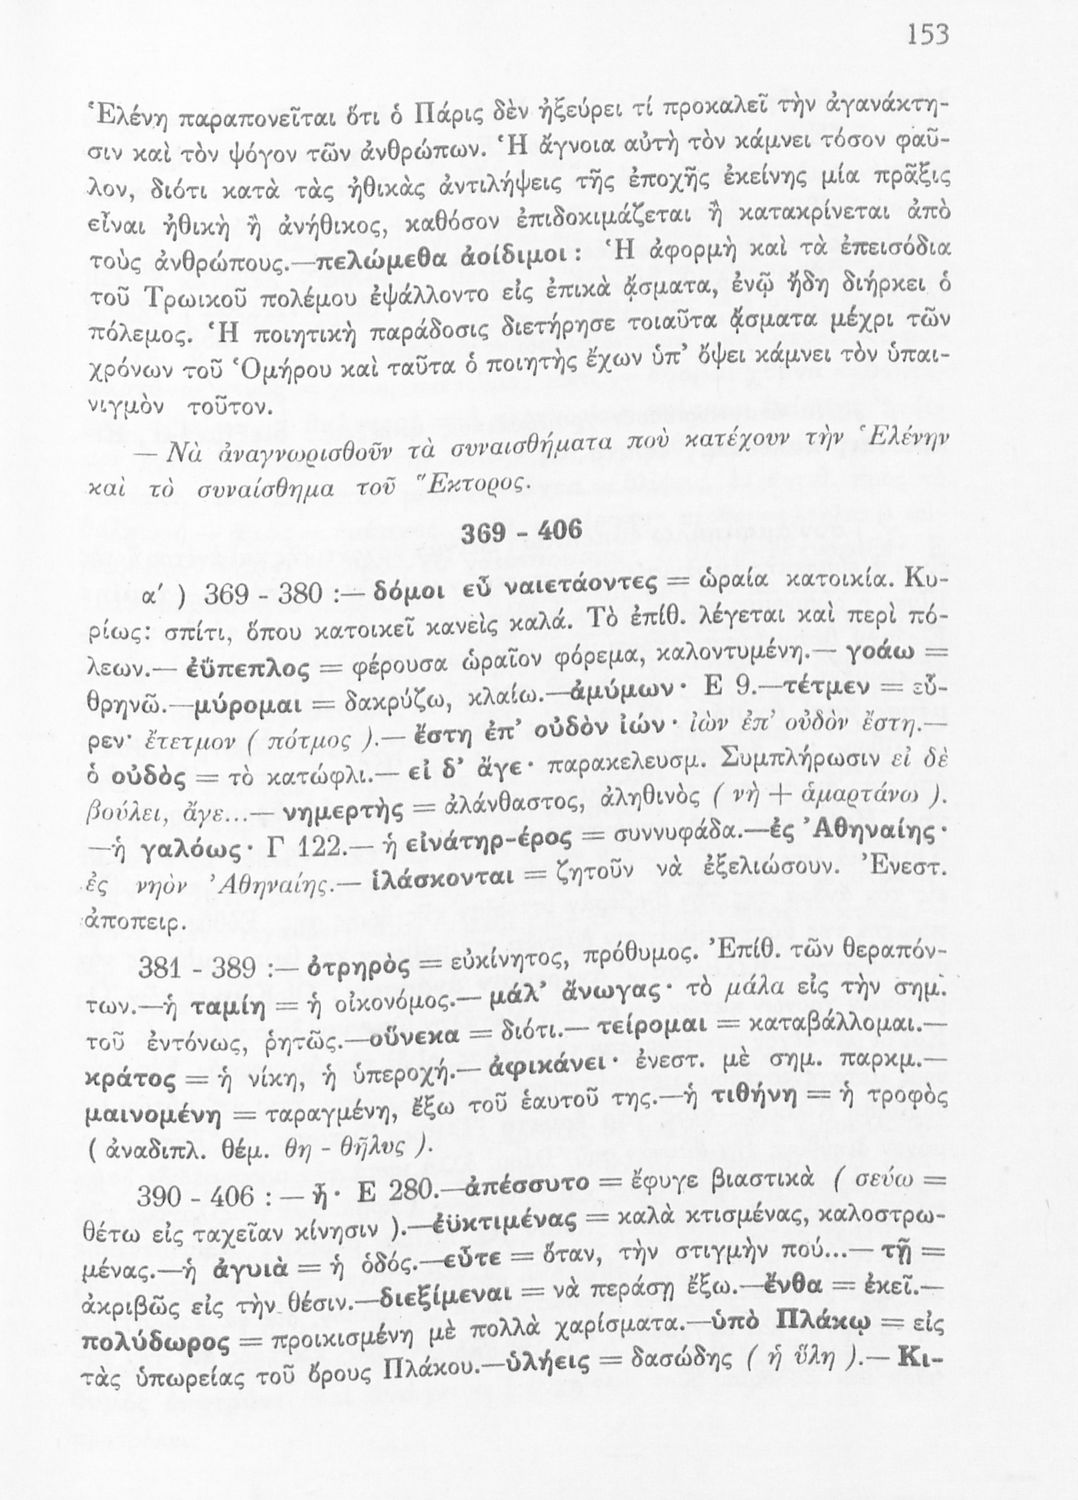 153
Ἑλένη παραπονεῖται ὅτι ὁ Πάρις δὲν ἠξεύρει τί προκαλεῖ τὴν ἀγανάκτη-
σιν καὶ τὸν ψόγον τῶν ἀνθρώπων. Ἡ ἄγνοια αὐτὴ τὸν κάμνει τόσον φαῦ-
λον, διότι κατὰ τὰς ἠθικὰς ἀντιλήψεις τῆς ἐποχῆς ἐκείνης μία πρᾶξις
εἶναι ἠθικὴ ἢ ἀνήθικος, καθόσον ἐπιδοκιμάζεται ἢ κατακρίνεται ἀπὸ
τοὺς ἀνθρώπους.—πελώμεθα ἀοίδιμοι : Ἡ ἀφορμὴ καὶ τὰ ἐπεισόδια
τοῦ Τρωικοῦ πολέμου ἐψάλλοντο εἰς ἐπικὰ ᾄσματα, ἐνῷ ἤδη διήρκει ὁ
πόλεμος. Ἡ ποιητικὴ παράδοσις διετήρησε τοιαῦτα ᾄσματα μέχρι τῶν
χρόνων τοῦ Ὁμήρου καὶ ταῦτα ὁ ποιητὴς ἔχων ὑπ’ ὄψει κάμνει τὸν ὑπαι-
νιγμὸν τοῦτον.
— Νὰ ἀναγνωρισθοῦν τὰ συναισθήματα ποὺ κατέχουν τὴν Ἑλένην
καὶ τὸ συναίσθημα τοῦ Ἕκτορος.
369 - 406
α′ ) 369 - 380 :— δόμοι εὖ ναιετάοντες = ὡραία κατοικία. Κυ-
ρίως: σπίτι, ὅπου κατοικεῖ κανεὶς καλά. Τὸ ἐπίθ. λέγεται καὶ περὶ πό-
λεων.— ἐΰπεπλος = φέρουσα ὡραῖον φόρεμα, καλοντυμένη.— γοάω =
θρηνῶ.—μύρομαι = δακρύζω, κλαίω.—ἀμύμων· Ε 9.—τέτμεν = εὗ-
ρεν· ἔτετμον ( πότμος ).— ἔστη ἐπ’ οὐδὸν ἰών· ἰὼν ἐπ’ οὐδὸν ἔστη.—
ὁ οὐδὸς = τὸ κατώφλι.— εἰ δ’ ἄγε· παρακελευσμ. Συμπλήρωσιν εἰ δὲ
βούλει, ἄγε...— νημερτὴς = ἀλάνθαστος, ἀληθινὸς ( νὴ + ἁμαρτάνω ).
—ἡ γαλόως· Γ 122.— ἡ εἰνάτηρ-έρος = συννυφάδα.—ἐς Ἀθηναίης·
ἐς νηὸν Ἀθηναίης.— ἱλάσκονται = ζητοῦν νὰ ἐξελιώσουν. Ἐνεστ.
ἀποπειρ.
381 - 389 :— ὀτρηρὸς = εὐκίνητος, πρόθυμος. Ἐπίθ. τῶν θεραπόν-
των.—ἡ ταμίη = ἡ οἰκονόμος.— μάλ’ ἄνωγας· τὸ μάλα εἰς τὴν σημ.
τοῦ ἐντόνως, ῥητῶς.—οὕνεκα = διότι.— τείρομαι = καταβάλλομαι.—
κράτος = ἡ νίκη, ἡ ὑπεροχή.— ἀφικάνει· ἐνεστ. μὲ σημ. παρκμ.—
μαινομένη = ταραγμένη, ἔξω τοῦ ἑαυτοῦ της.—ἡ τιθήνη = ἡ τροφὸς
( ἀναδιπλ. θέμ. θη - θῆλυς ).
390 - 406 : — ἦ· Ε 280.—ἀπέσσυτο = ἔφυγε βιαστικὰ ( σεύω =
θέτω εἰς ταχεῖαν κίνησιν ).—ἐϋκτιμένας = καλὰ κτισμένας, καλοστρω-
μένας.—ἡ ἀγυιὰ = ἡ ὁδός.—εὖτε = ὅταν, τὴν στιγμὴν πού...— τῇ =
ἀκριβῶς εἰς τὴν θέσιν.—διεξίμεναι = νὰ περάσῃ ἔξω.—ἔνθα = ἐκεῖ.—
πολύδωρος = προικισμένη μὲ πολλὰ χαρίσματα.—ὑπὸ Πλάκῳ = εἰς
τὰς ὑπωρείας τοῦ ὄρους Πλάκου.—ὑλήεις = δασώδης ( ἡ ὕλη ).— Κι-